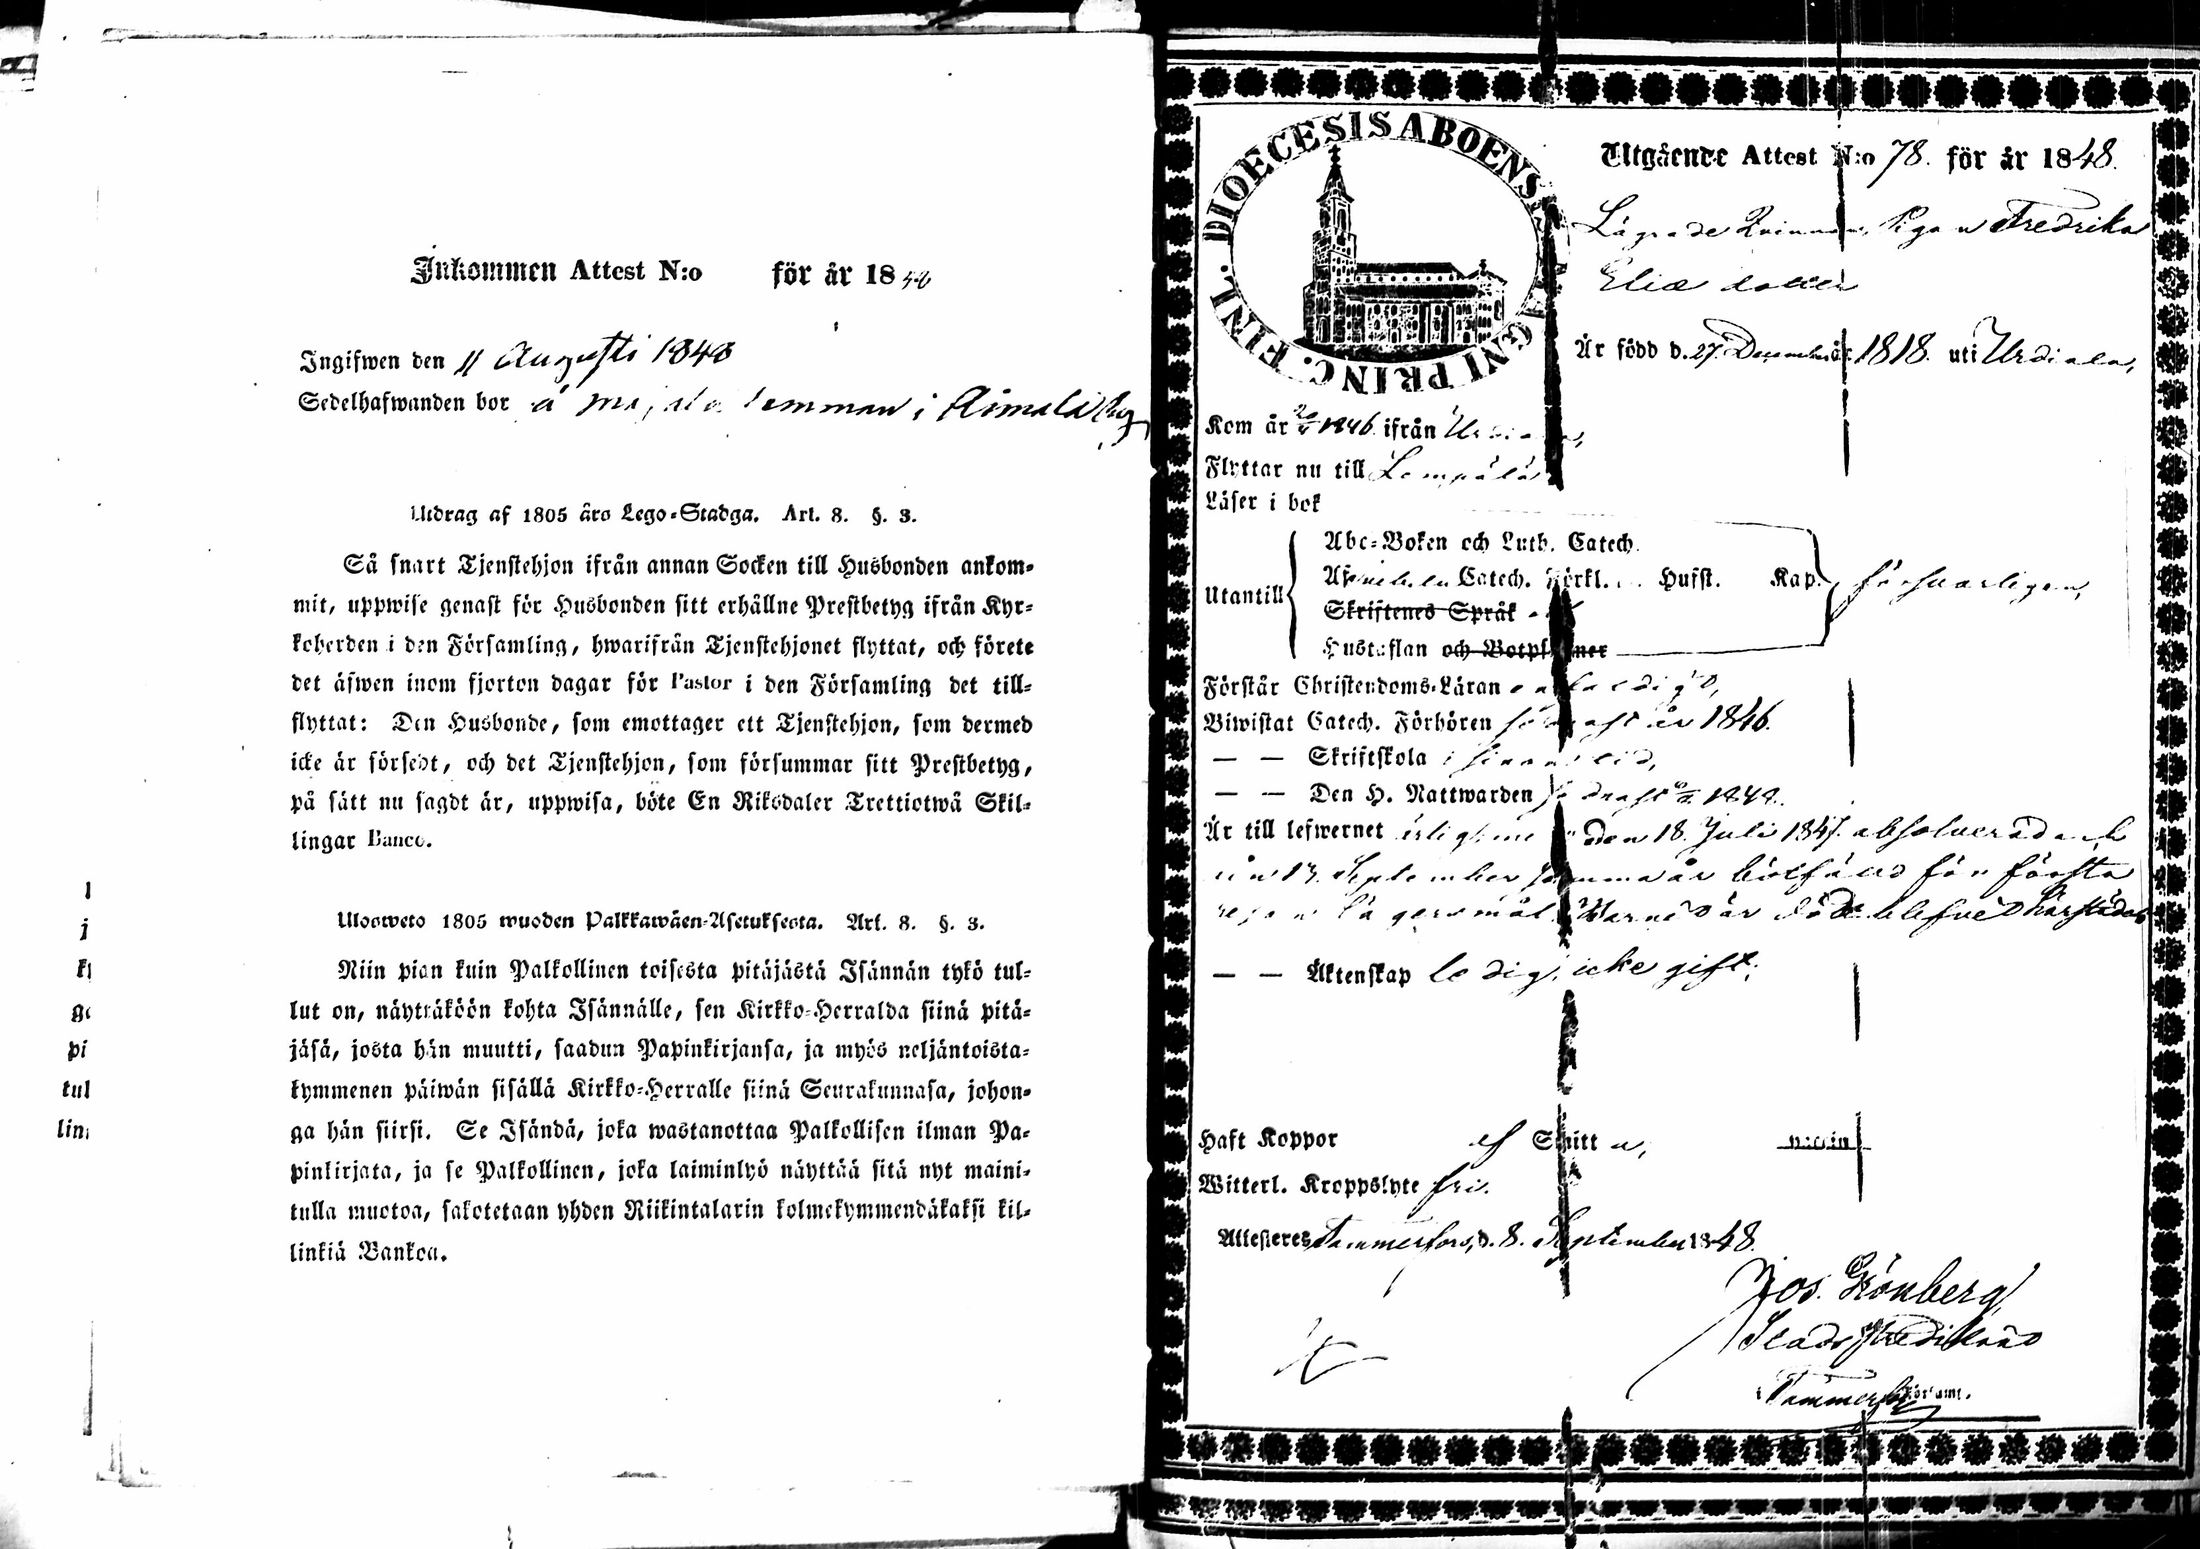 Inkommen Attest N:o för år 1848
Ingifwen den 11 Augusti 1848
Sedelhafwanden bor å
Utdrag af 1805 års Lego-Stadga. Art. 8. §. 3.
Så snart Tjenstehjon ifrån annan Socken till Husbonden ankom-
mit, uppwise genast för Husbonden sitt erhållne Prestbetyg ifrån Kyr-
koherden i den Församling, hwarifrån Tjenstehjonet flyttat, och förete
det äfwen inom fjorton dagar för Pastor i den Församling det till-
flyttat: Den Husbonde, som emottager ett Tjenstehjon, som dermed
icke är försedt, och det Tjenstehjon, som försummar sitt Prestbetyg,
på sätt nu sagdt är, uppwisa, böte En Riksdaler Trettiotwå Skil-
lingar Banco.
Ulosweto 1805 wuoden Palkkawäen-Asetuksesta. Art. 8. §. 3.
Niin pian kuin Palkollinen toisesta pitäjästä Isännän tykö tul-
lut on, näyttäköön kohta Isännälle, sen Kirkko-Herralda siinä pitä-
jäsä, josta hän muutti, saadun Papinkirjansa, ja myös neljäntoista-
kymmenen päiwän sisällä Kirkko-Herralle siinä Seurakunnasa, johon-
ga hän siirsi. Se Isändä, joka wastanottaa Palkollisen ilman Pa-
pinkirjata, ja se Palkollinen, joka laiminlyö näyttää sitä nyt maini-
tulla muotoa, sakotetaan yhden Riikintalarin kolmekymmendäkaksi kil-
linkiä Bankoa.
DIOECESIS ABOENSIS MAGNI PRINC. FINL.
Utgående Attest N:o 78. för år 1848.
Lägrade Qvinnan Pigan Fredrika
Eliæ dotter
Är född d. 27 December år 1818. uti Urdiala,
Kom år 1846 ifrån Urdiala,
Flyttar nu till Lempälä
Läser i bok
Utantill
Abc-Boken och Luth. Catech.
Catech. Förkl. Husst. Kap.
Skriftenes Språk
Hustaflan och Botpsalmer
försvarligen,
Förstår Christendoms-Läran
Biwistat Catech. Förhören sednast år 1846.
— — Skriftskola i sinom tid,
— — Den H. Nattwarden sednast 1848.
Är till lefwernet den 18. Juli 1847. absolverad och
den 13. September samma år bötfäld för första
resan lägersmål. Barnet är dödt
— — Äktenskap ledig, icke gift.
Haft Koppor ej Smitt
Witterl. Kroppslyte fri.
Attesteres Tammerfors, d. 8. September 1848.
Jos. Grönberg
Stads Predikant
i Tammerfors Församl.